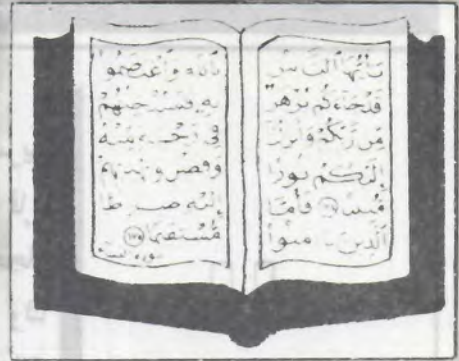 يَٰٓأَيُّهَا ٱلنَّاسُ
قَدْ جَآءَكُم بُرْهَٰنٌ
مِّن رَّبِّكُمْ وَأَنزَلْنَآ
إِلَيْكُمْ نُورًا
مُّبِينًا ١٧٤ فَأَمَّا
ٱلَّذِينَ ءَامَنُوا
بِٱللَّهِ وَٱعْتَصَمُوا
بِهِ فَسَيُدْخِلُهُمْ
فِى رَحْمَةٍ مِّنْهُ
وَفَضْلٍ وَيَهْدِيهِمْ
إِلَيْهِ صِرَٰطًا
مُّسْتَقِيمًا ١٧٥
سورة النساء